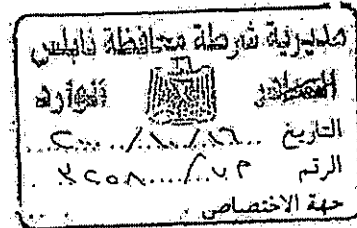 مديرية شرطة محافظة نابلس
الصادر الوارد
التاريخ ٢٠٠٠/١٠/١٦
الرقم ٧٣/٢٢٥٨
جهة الاختصاص